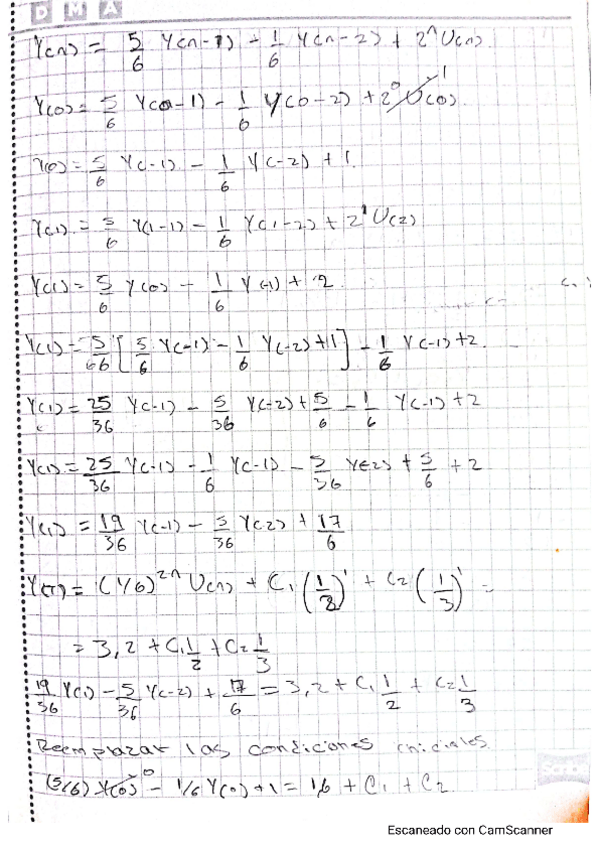 D M A
Y(n) = 5/6 Y(n-1) - 1/6 Y(n-2) + 2^n U(n).
Y(0) = 5/6 Y(0-1) - 1/6 Y(0-2) + 2^0 U(0). 1
Y(0) = 5/6 Y(-1) - 1/6 Y(-2) + 1.
Y(1) = 5/6 Y(1-1) - 1/6 Y(1-2) + 2^1 U(2)
Y(1) = 5/6 Y(0) - 1/6 Y(-1) + 2.
Y(1) = 5/66 [5/6 Y(-1) - 1/6 Y(-2) + 1] - 1/6 Y(-1) + 2.
Y(1) = 25/36 Y(-1) - 5/36 Y(-2) + 5/6 - 1/6 Y(-1) + 2
Y(1) = 25/36 Y(-1) - 1/6 Y(-1) - 5/36 Y(-2) + 5/6 + 2
Y(1) = 19/36 Y(-1) - 5/36 Y(-2) + 17/6
Y(1) = (1,6) 2^n U(n) + C1 (1/2)^1 + C2 (1/3)^1 =
= 3,2 + C1 1/2 + C2 1/3
19/36 Y(1) - 5/36 Y(-2) + 17/6 = 3,2 + C1 1/2 + C2 1/3
Reemplazar las condiciones iniciales.
(5/6) Y(0) 0 - 1/6 Y(0) + 1 = 1,6 + C1 + C2
Escaneado con CamScanner